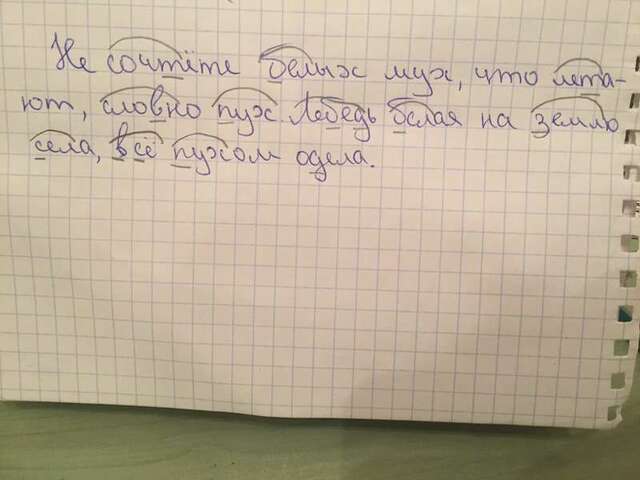 Не сочтёте белых мух, что лета-
ют, словно пух. Лебедь белая на землю
села, всё пухом одела.